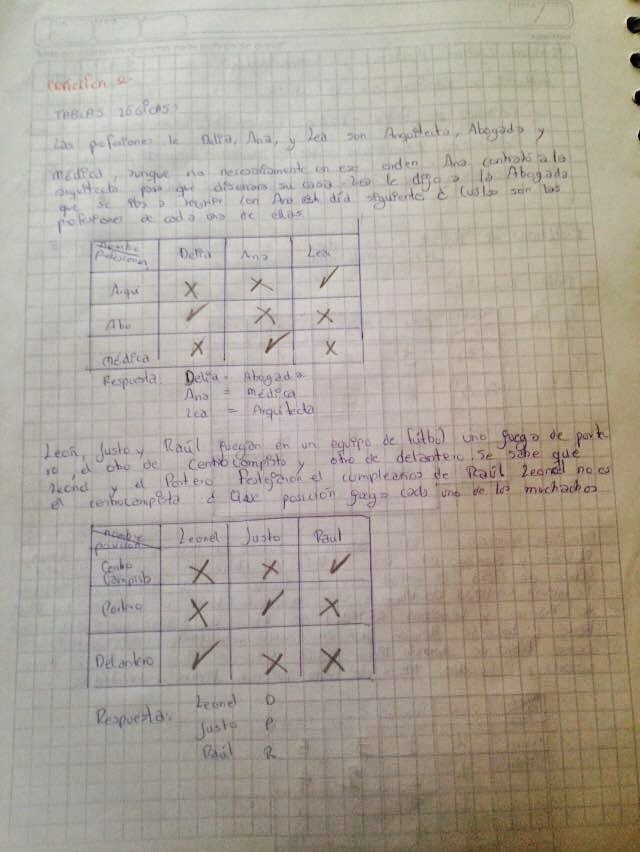 TABLAS LÓGICAS:
Las profesiones de Delia, Ana, y Lea son Arquitecta, Abogada y
médica, aunque no necesariamente en ese orden. Ana contrató a la
arquitecta para que diseñara su casa. Lea le dijo a la Abogada
que se iba a reunir con Ana el día siguiente ¿ Cuáles son las
profesiones de cada una de ellas
nombre profesiones Delia Ana Lea
Arqui X X ✓
Abo ✓ X X
médica X ✓ X
Respuesta: Delia = Abogada
Ana = médica
Lea = Arquitecta
Justo y Raúl juegan en un equipo de fútbol uno juega de porte
ro, el otro de Centrocampista y otro de delantero. Se sabe que
Leonel y el Portero festejaron el cumpleaños de Raúl Leonel no es
el centrocampista. ¿ Que posición juega cada uno de los muchachos
nombre posición Leonel Justo Raúl
Centro X X ✓
Portero X ✓ X
Delantero ✓ X X
Respuesta: Leonel D
Justo P
Raúl R